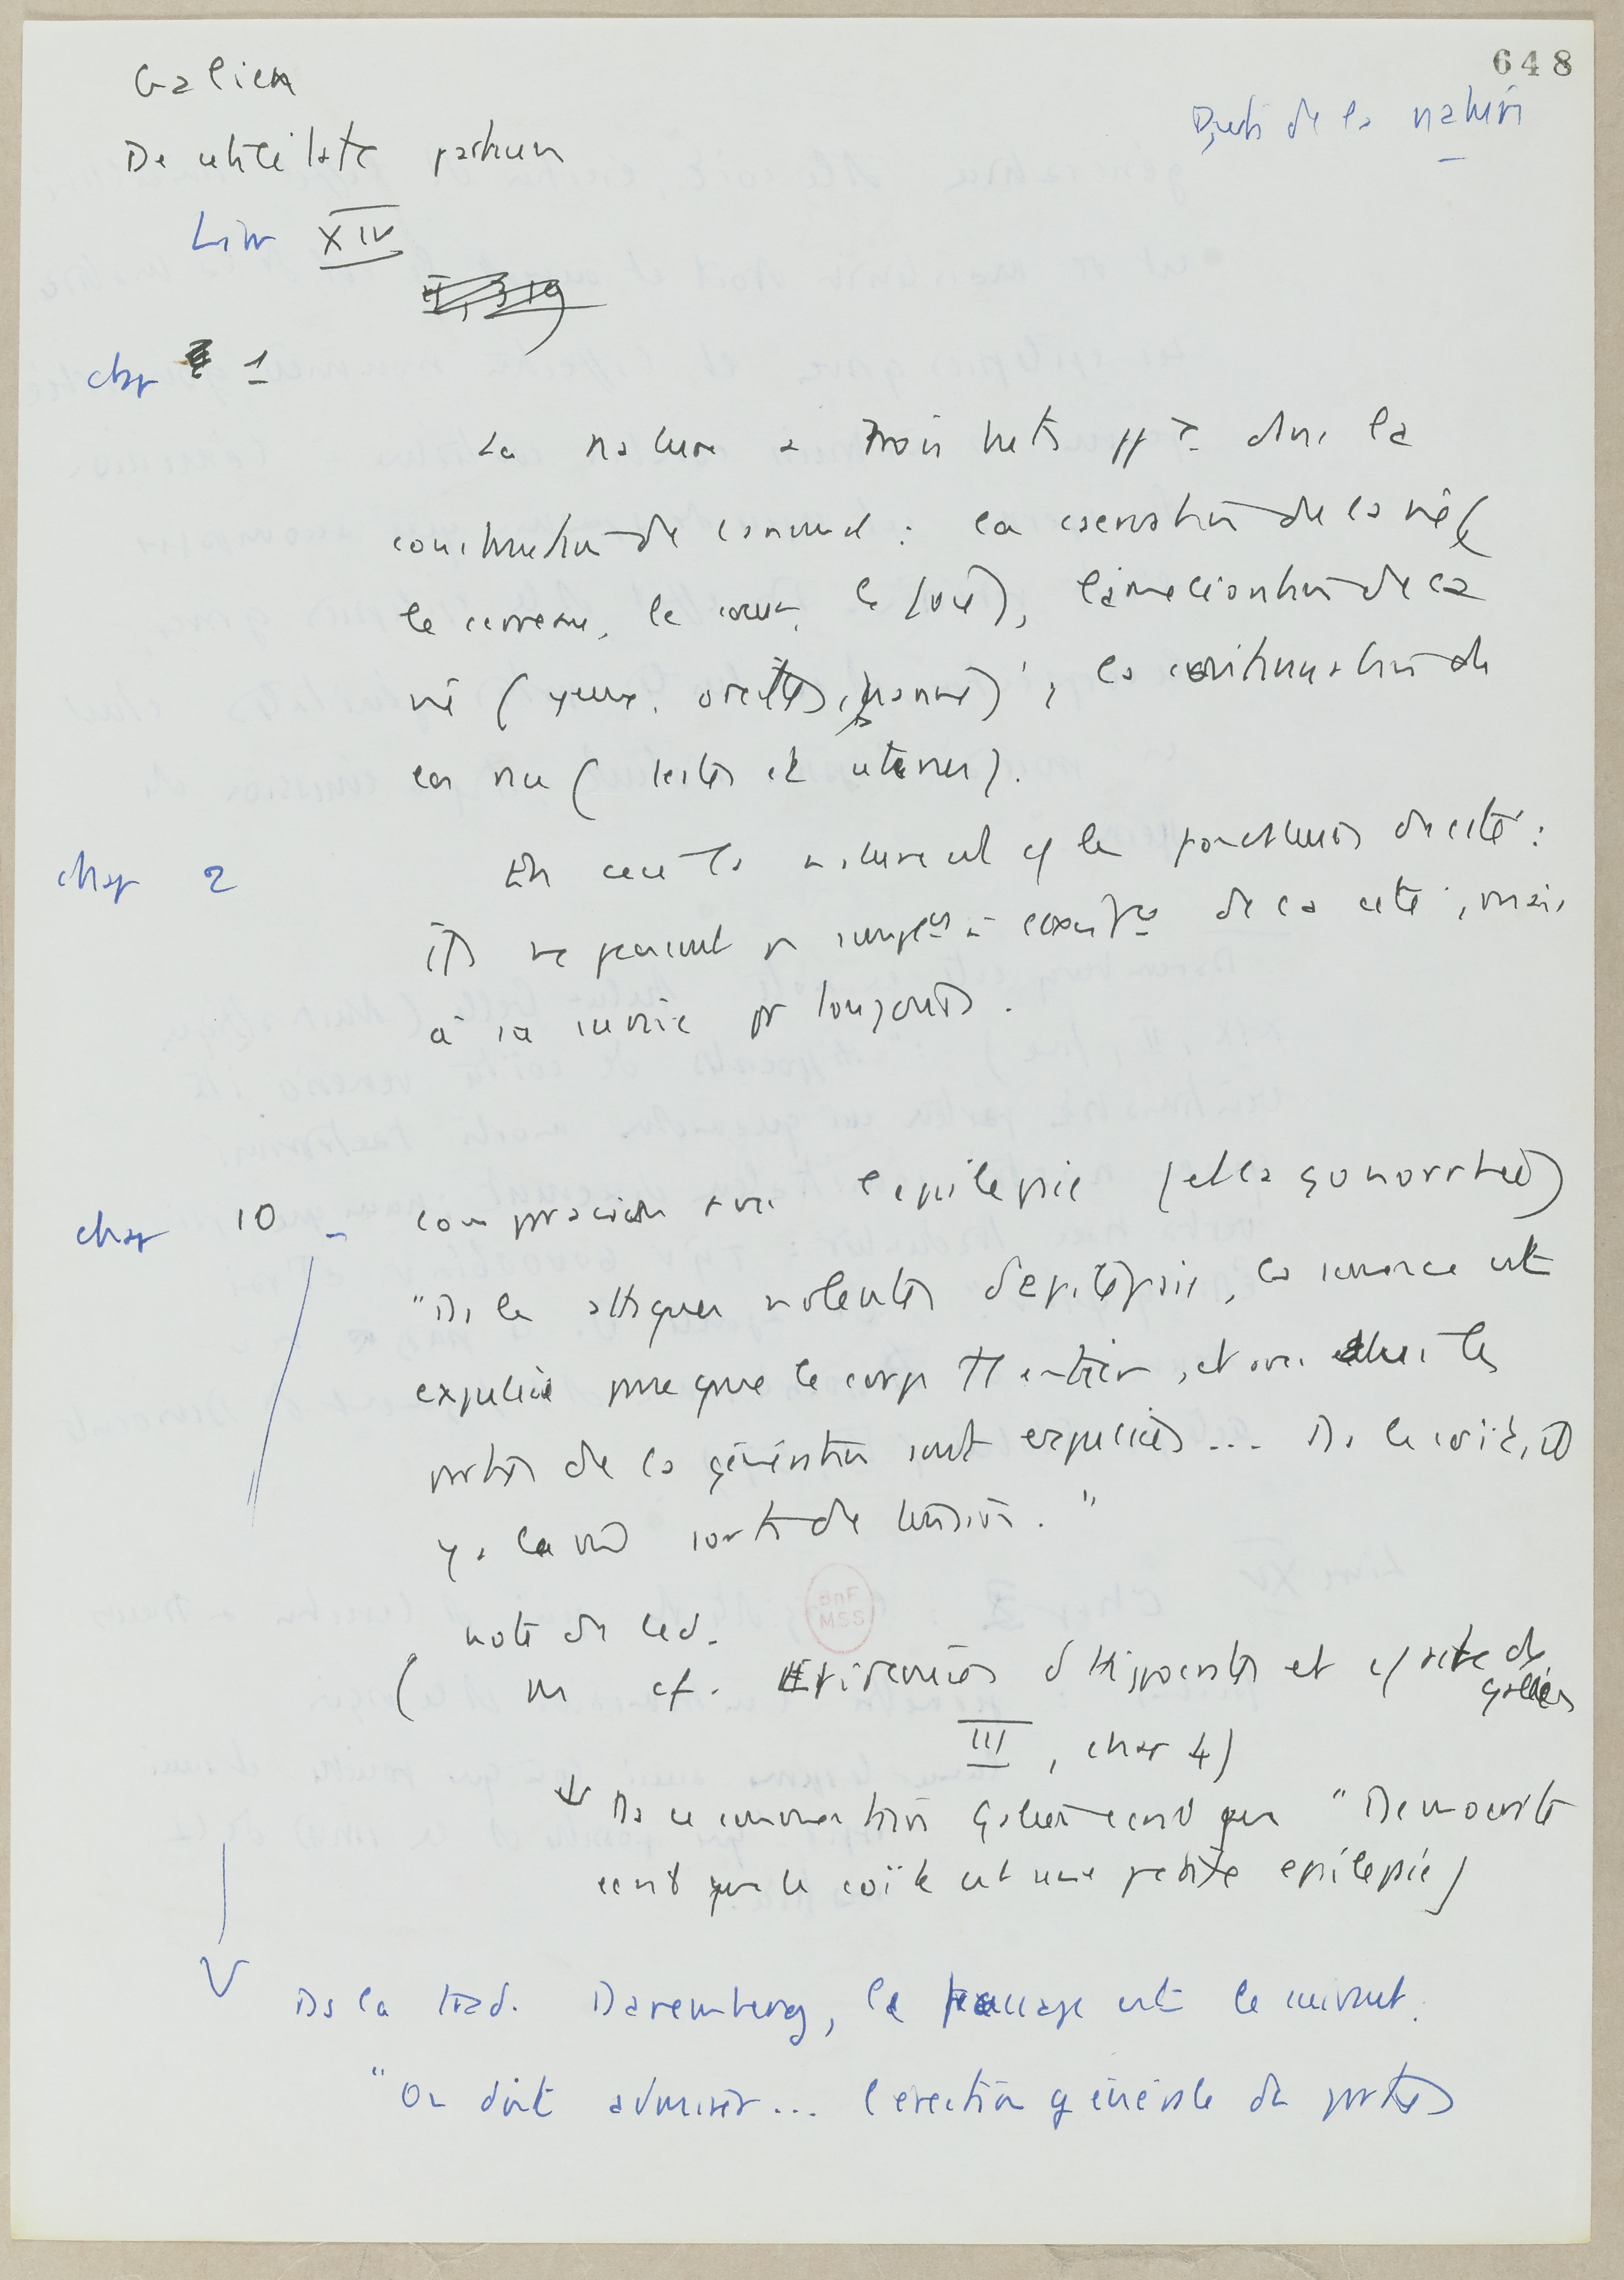 648
Galien
Buts de la nature
De utilitate partium
Livre XIV
chap 1
La nature a trois buts ppx dans la
construction de l'animal : la conservation de la vie (
le cerveau, le cœur, le foie), l'amélioration de la
vie (yeux, oreilles, mains), la continuation de
la vie (testes et uterus).
chap 2
En cela la nature est c/ les fondateurs de cité :
ils ne pensent pas simplt à de la cité, mais
à sa survie pr toujours.
chap 10 - comparaison avec l'epilepsie (et la gonorrhée)
"Ds les attaques violentes d'epilepsie, la semence est
expulsée parce que le corps tt entier, et avec lui les
parties de la génération sont ... Ds le coït, il
y a la même sorte de tension."
note de l'ed.
( cf. Epidemies d'Hippocrate et de
Galien
III, chap 4)
↓ Ds ce commentaire Galien ecrit que "Democrite
ecrit que le coït est une petite epilepsie)
Ds la trad. Daremberg, le passage est le suivant.
"On doit admirer... l'erection générale des parties